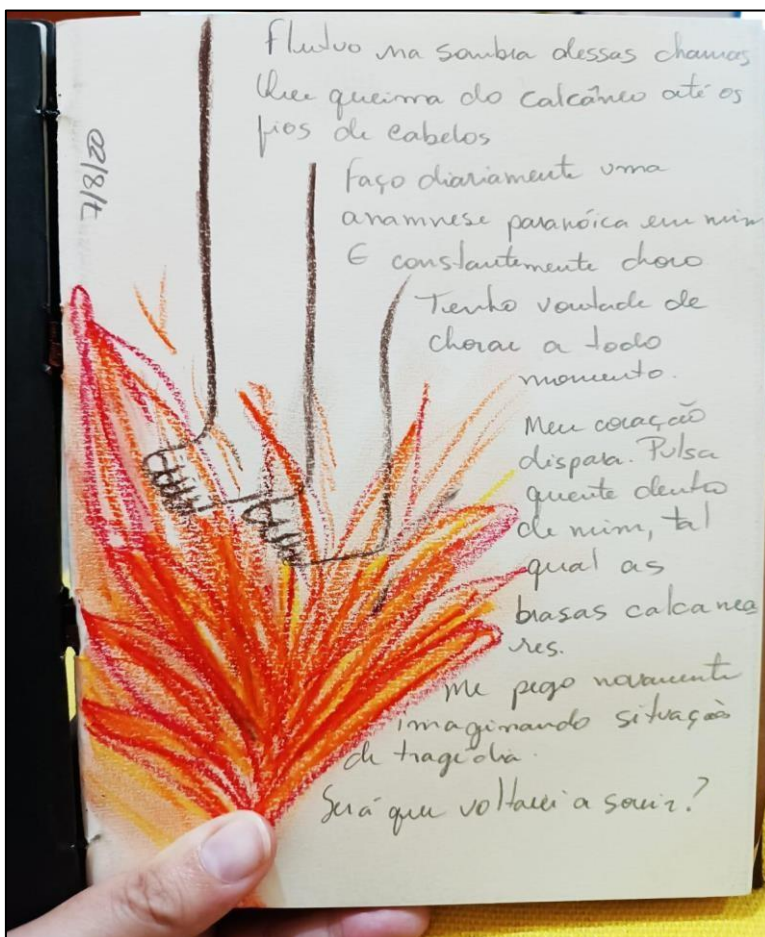 Flutuo na sombra dessas chamas
Que queima do calcâneo até os
fios de cabelos
Faço diariamente uma
anamnese paranóica em mim
E constantemente choro
Tenho vontade de
chorar a todo
momento.
Meu coração
dispara. Pulsa
quente dentro
de mim, tal
qual as
brasas calcanea
res.
Me pego novamente
imaginando situação
de tragédia.
Será que voltarei a sorrir?